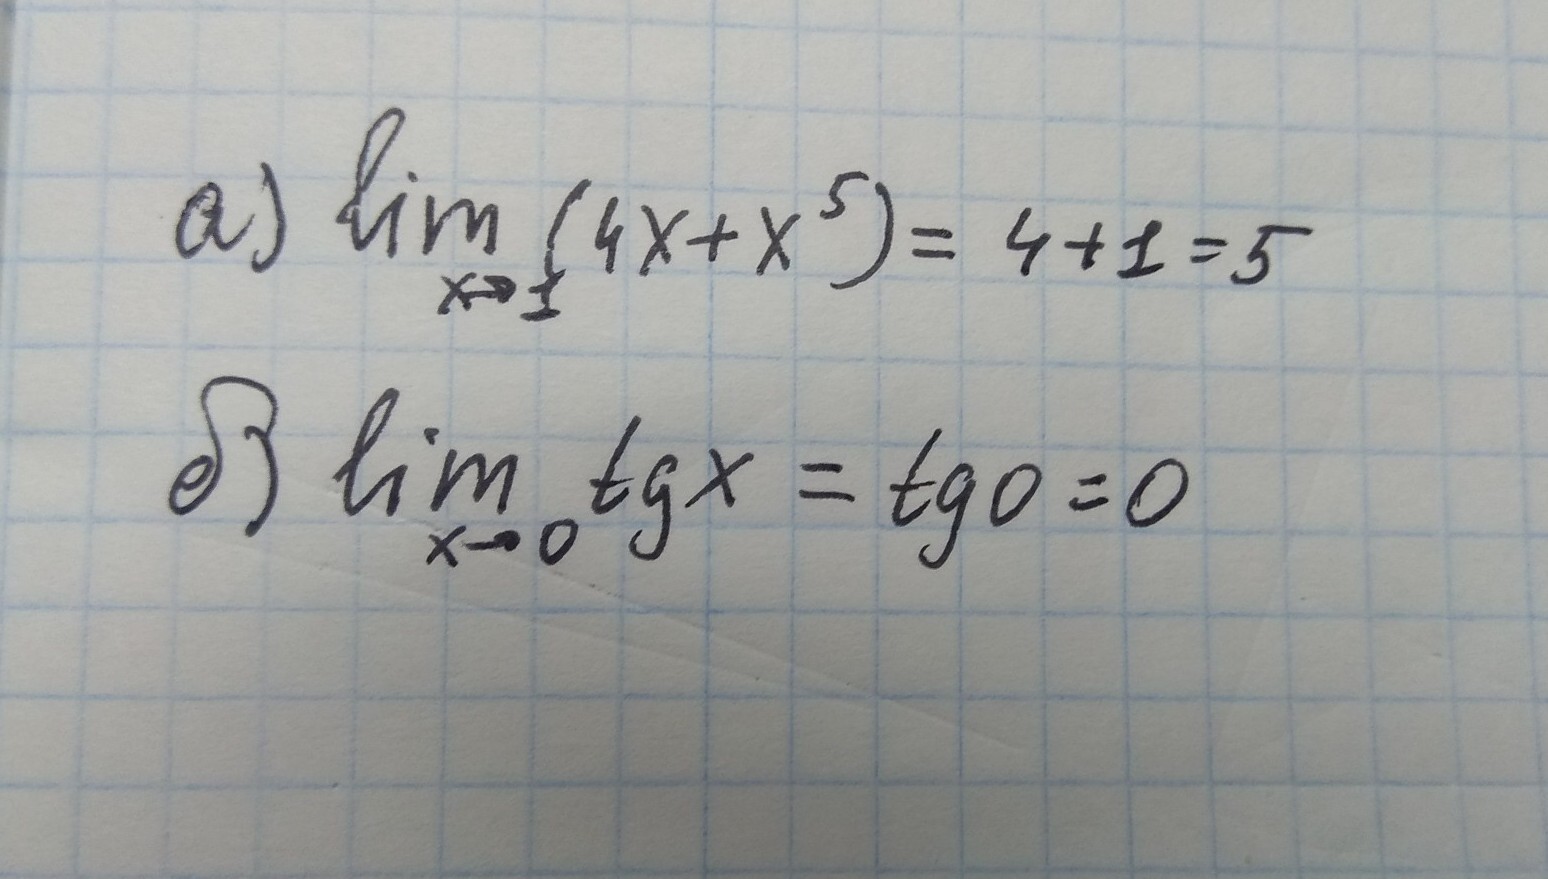 а) lim x→1 (4x+x⁵) = 4+1=5
б) lim x→0 tgx = tg0=0